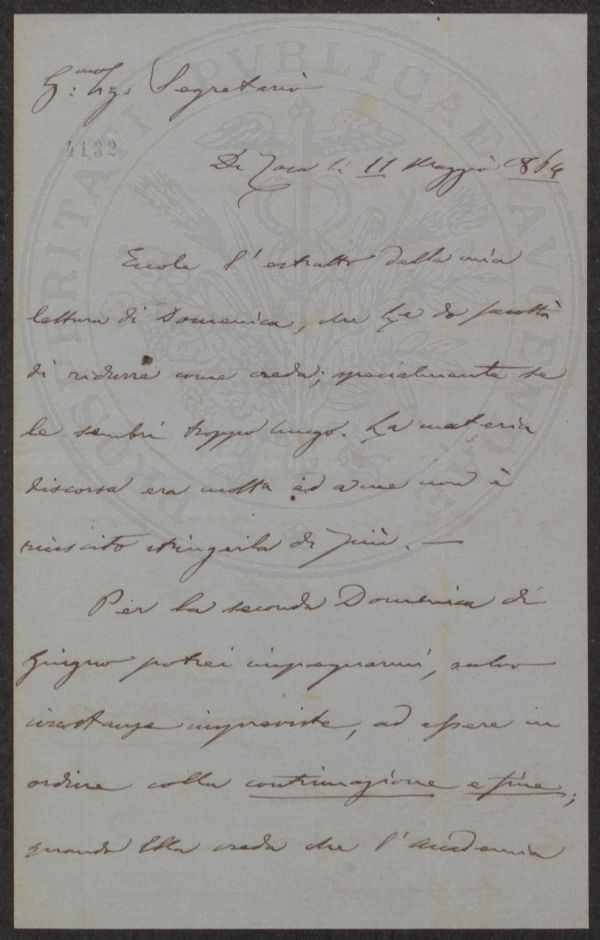 Segretario
4132
Di Casa li 11 Maggio 1864
Eccole l'estratto della mia
lettura di Domenica, che Le do facoltà
di ridurre come creda; specialmente se
le sembri troppo lungo. La materia
discorsa era molta ed a me non è
riuscito stringerla di più. —
Per la seconda Domenica di
Giugno potrei impegnarmi, salvo
circostanze impreviste, ad essere in
ordine colla continuazione e fine;
quando Ella creda che l'Accademia
PROSPERITATI PUBLICAE AUGENDAE